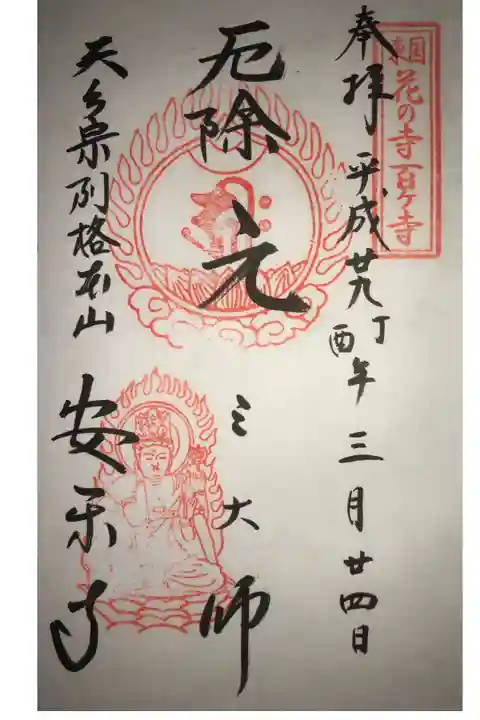 東国
花の寺百ヶ寺
奉拝 平成廿九丁酉年三月廿四日
厄除 元三大師
天台宗別格本山 安楽寺